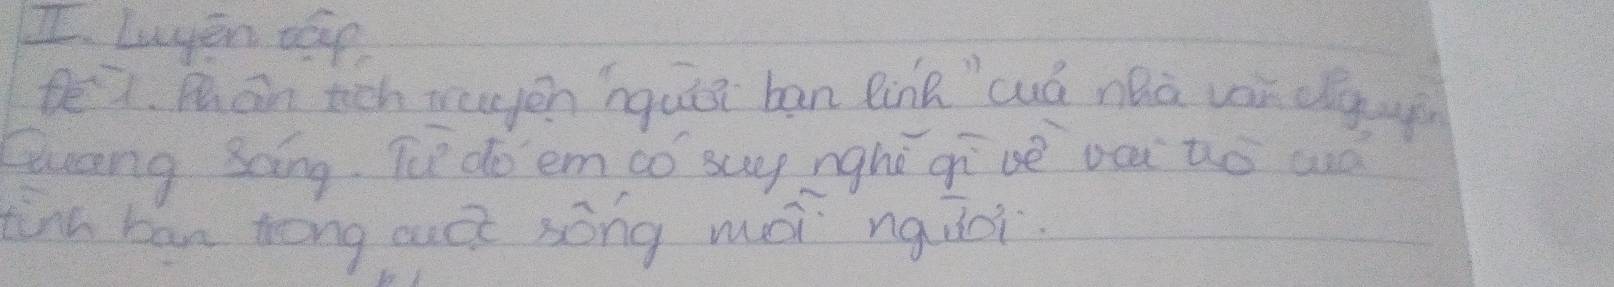 II. Luyện tập.
Đề 1. Phân tích truyện "người bạn lính" của nhà văn Nguyễn
Quang Sáng. Từ đó em có suy nghĩ gì về vai trò của
tình bạn trong cuộc sống mỗi người.